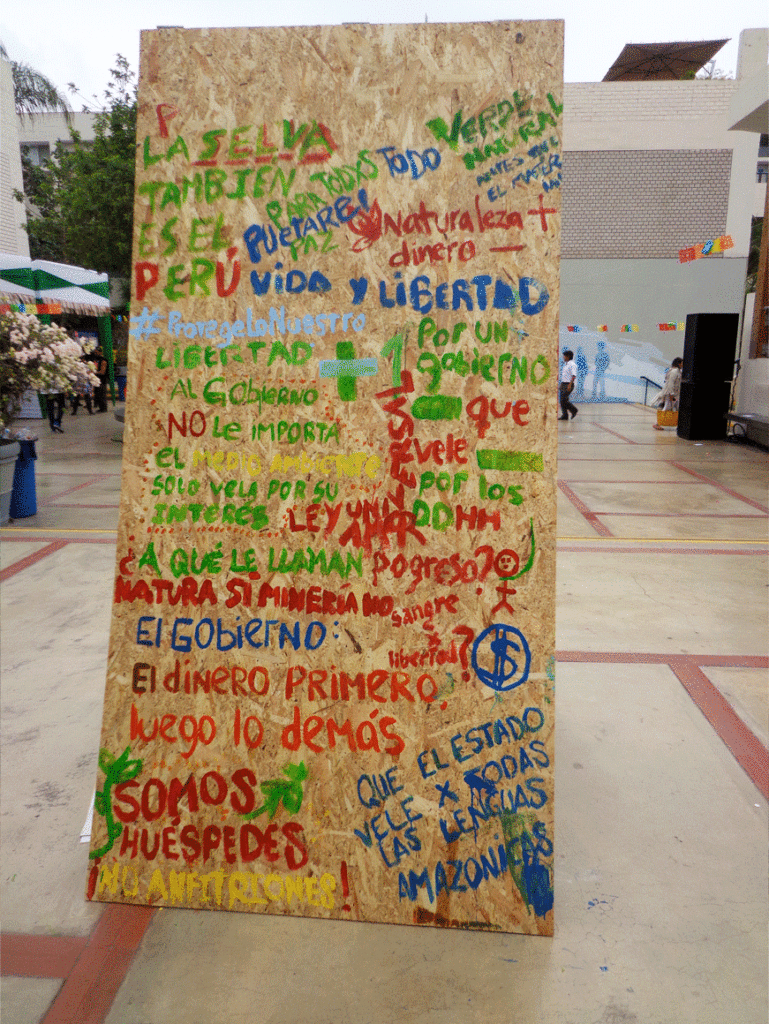 LA SELVA
TAMBIÉN
ES EL
PERÚ
PARA TODXS
TODO
VERDE
NATURAL
ANTES
EL MATER
PAZ
Naturaleza +
dinero —
VIDA Y LIBERTAD
#ProtegeLoNuestro
LIBERTAD + 1
AL GOBIERNO
NO LE IMPORTA
EL MEDIO AMBIENTE
SOLO VELA POR SU
INTERÉS
Por UN
gobierno
- que
vele -
por los
DDHH
LEY UNIVERSAL
AMOR
¿A QUÉ LE LLAMAN Pogreso?
NATURA SI MINERÍA NO
sangre
x
libertad?
El GOBIERNO:
El dinero PRIMERO,
luego lo demás
$
SOMOS
HUÉSPEDES
¡NU ANFITRIONES!
QUE EL ESTADO
VELE X TODAS
LAS LENGUAS
AMAZONICAS